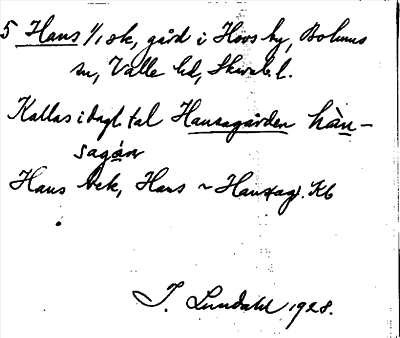 5 Hans 1/1 sk, gård i Hovs by, Bolums
sn, Valle hd, Skarab. l.
Kallas i dagl. tal Hansagården hàn-
sagárn
Hans hek, Hans ~ Hansag. Kb
I. Lundahl 1928.